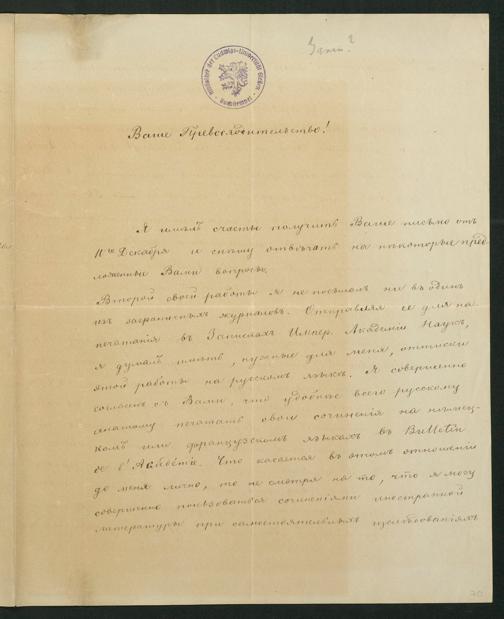 Ваше Превосходительство!
Я имѣлъ счастье получить Ваше письмо отъ
11го Декабря и спѣшу отвѣчать на нѣкоторые пред
ложенные Вами вопросы.
Второй своей работы я не посылалъ ни въ одинъ
изъ заграничныхъ журналовъ. Отправляя ее для на-
печатанія въ Запискахъ Импер. Академіи Наукъ,
я думалъ имѣть, нужные для меня, оттиски
этой работы на русскомъ языкѣ. Я совершенно
согласенъ съ Вами, что удобнѣе всего русскому
печатать свои сочиненія на нѣмец-
комъ или французскомъ языкахъ въ Bulletin
de l'Académie. Что касается въ этомъ отношеніи
до меня лично, то не смотря на то, что я могу
совершенно пользоваться сочиненіями иностранной
литературы при самостоятельныхъ изслѣдованіяхъ